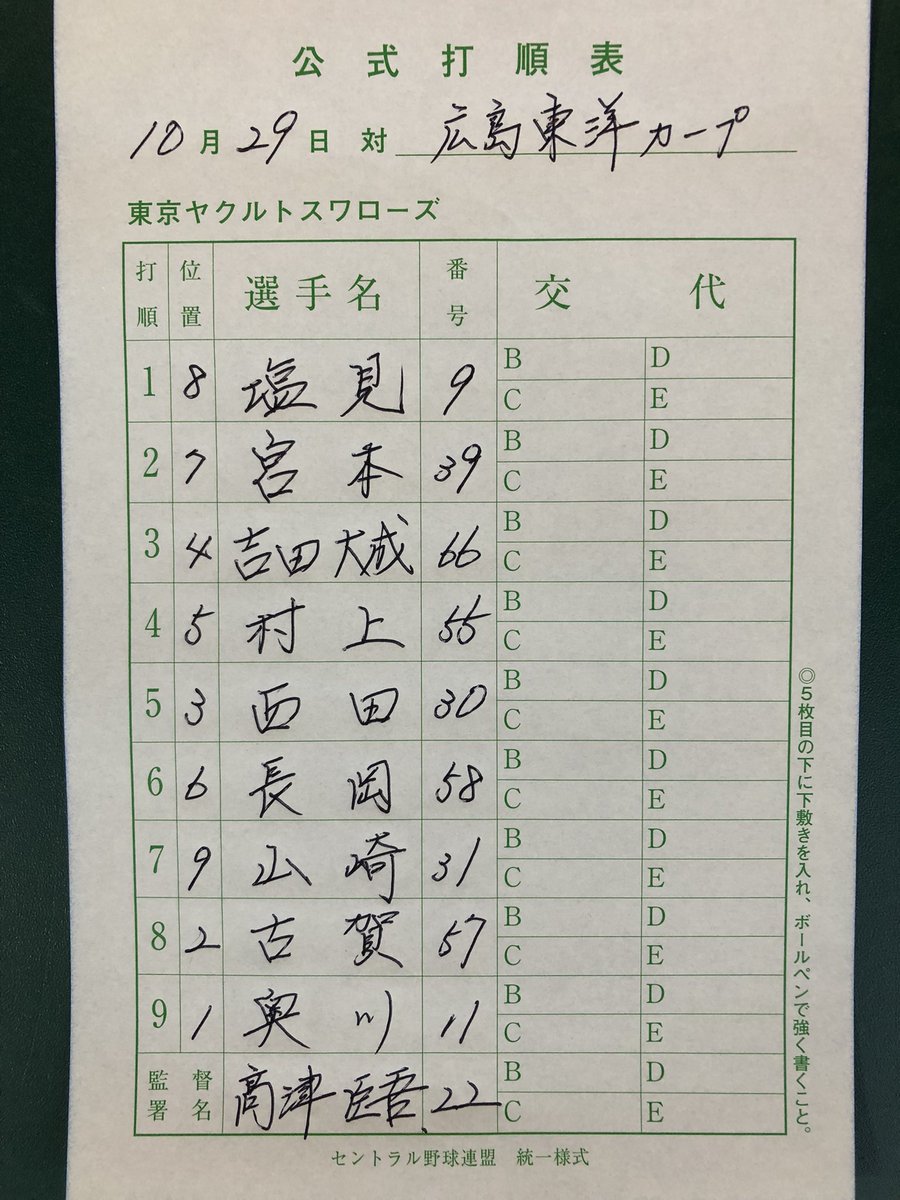 公式打順表
10月29日 対 広島東洋カープ
東京ヤクルトスワローズ
打順 位置 選手名 番号 交代
1 8 塩見 9 B D
C E
2 7 宮本 39 B D
C E
3 4 吉田大成 66 B D
C E
4 5 村上 55 B D
C E
5 3 西田 30 B D
C E
6 6 長岡 58 B D
C E
7 9 山崎 31 B D
C E
8 2 古賀 57 B D
C E
9 1 奥川 11 B D
C E
監督署名 高津臣吾 22 B D
C E
◎5枚目の下に下敷きを入れ、ボールペンで強く書くこと。
セントラル野球連盟 統一様式